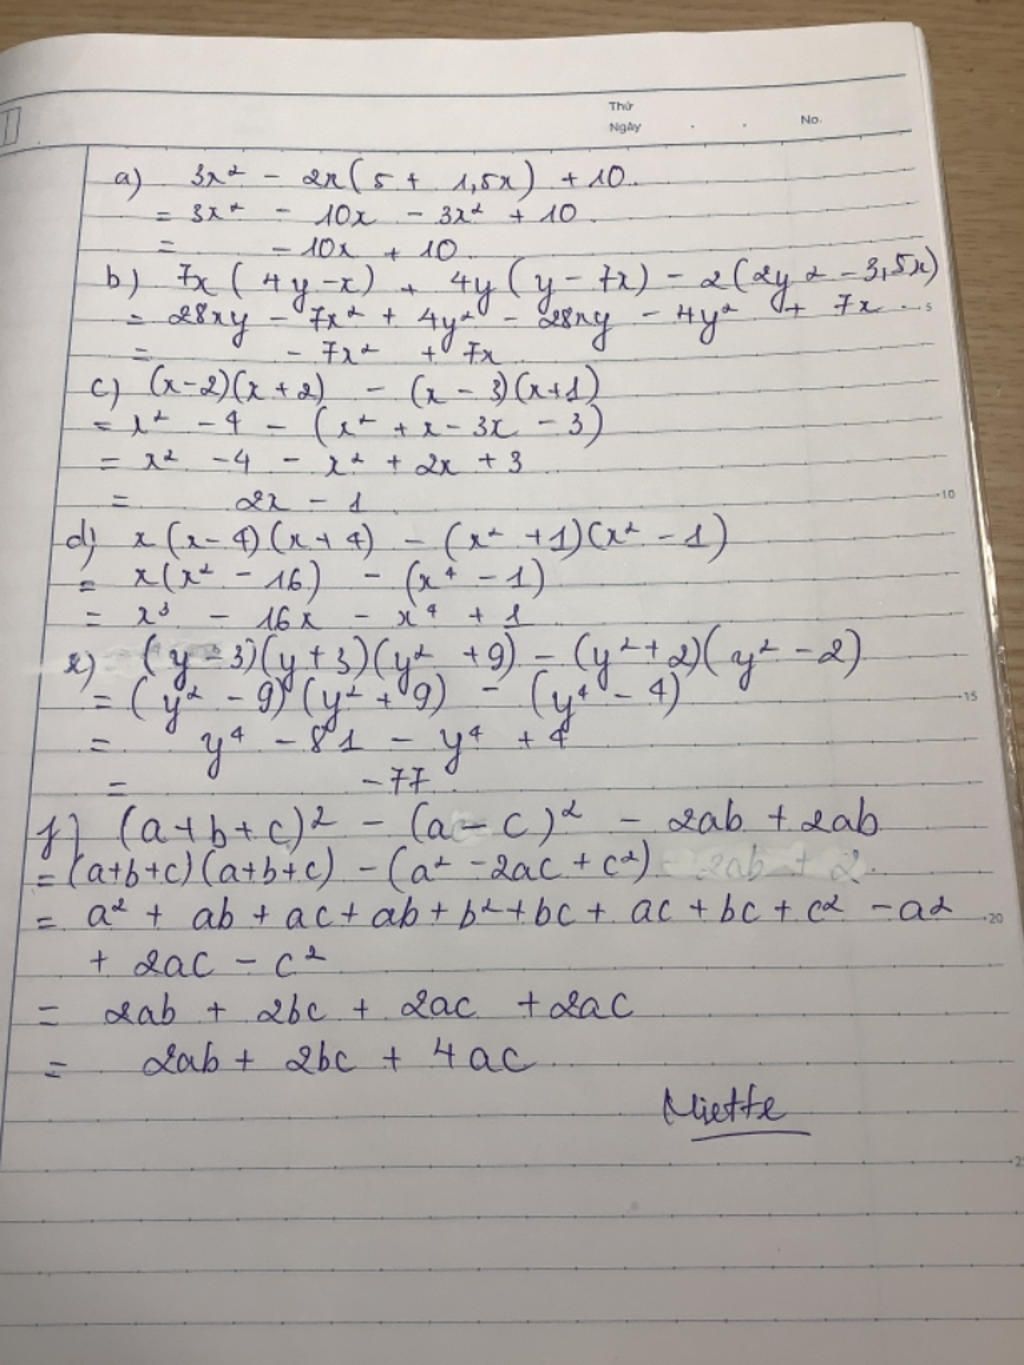 Thứ
Ngày . . No.
a) 3x² - 2x(5 + 1,5x) + 10
= 3x² - 10x - 3x² + 10
= - 10x + 10
b) 7x(4y-x) + 4y(y-7x) - 2(2y² - 3,5x)
= 28xy - 7x² + 4y² - 28xy - 4y² + 7x
5
= - 7x² + 7x
c) (x-2)(x+2) - (x-3)(x+1)
= x² - 4 - (x² + x - 3x - 3)
= x² - 4 - x² + 2x + 3
= 2x - 1
10
d) x(x-4)(x+4) - (x² + 1)(x² - 1)
= x(x² - 16) - (x⁴ - 1)
= x³ - 16x - x⁴ + 1
(y-3)(y+3)(y² + 9) - (y²+2)(y² - 2)
= (y² - 9)(y² + 9) - (y⁴ - 4)
15
= y⁴ - 81 - y⁴ + 4
= -77
f) (a+b+c)² - (a-c)² - 2ab + 2ab
= (a+b+c)(a+b+c) - (a² - 2ac + c²)
= a² + ab + ac + ab + b² + bc + ac + bc + c² - a²
20
+ 2ac - c²
= 2ab + 2bc + 2ac + 2ac
= 2ab + 2bc + 4ac
Miette